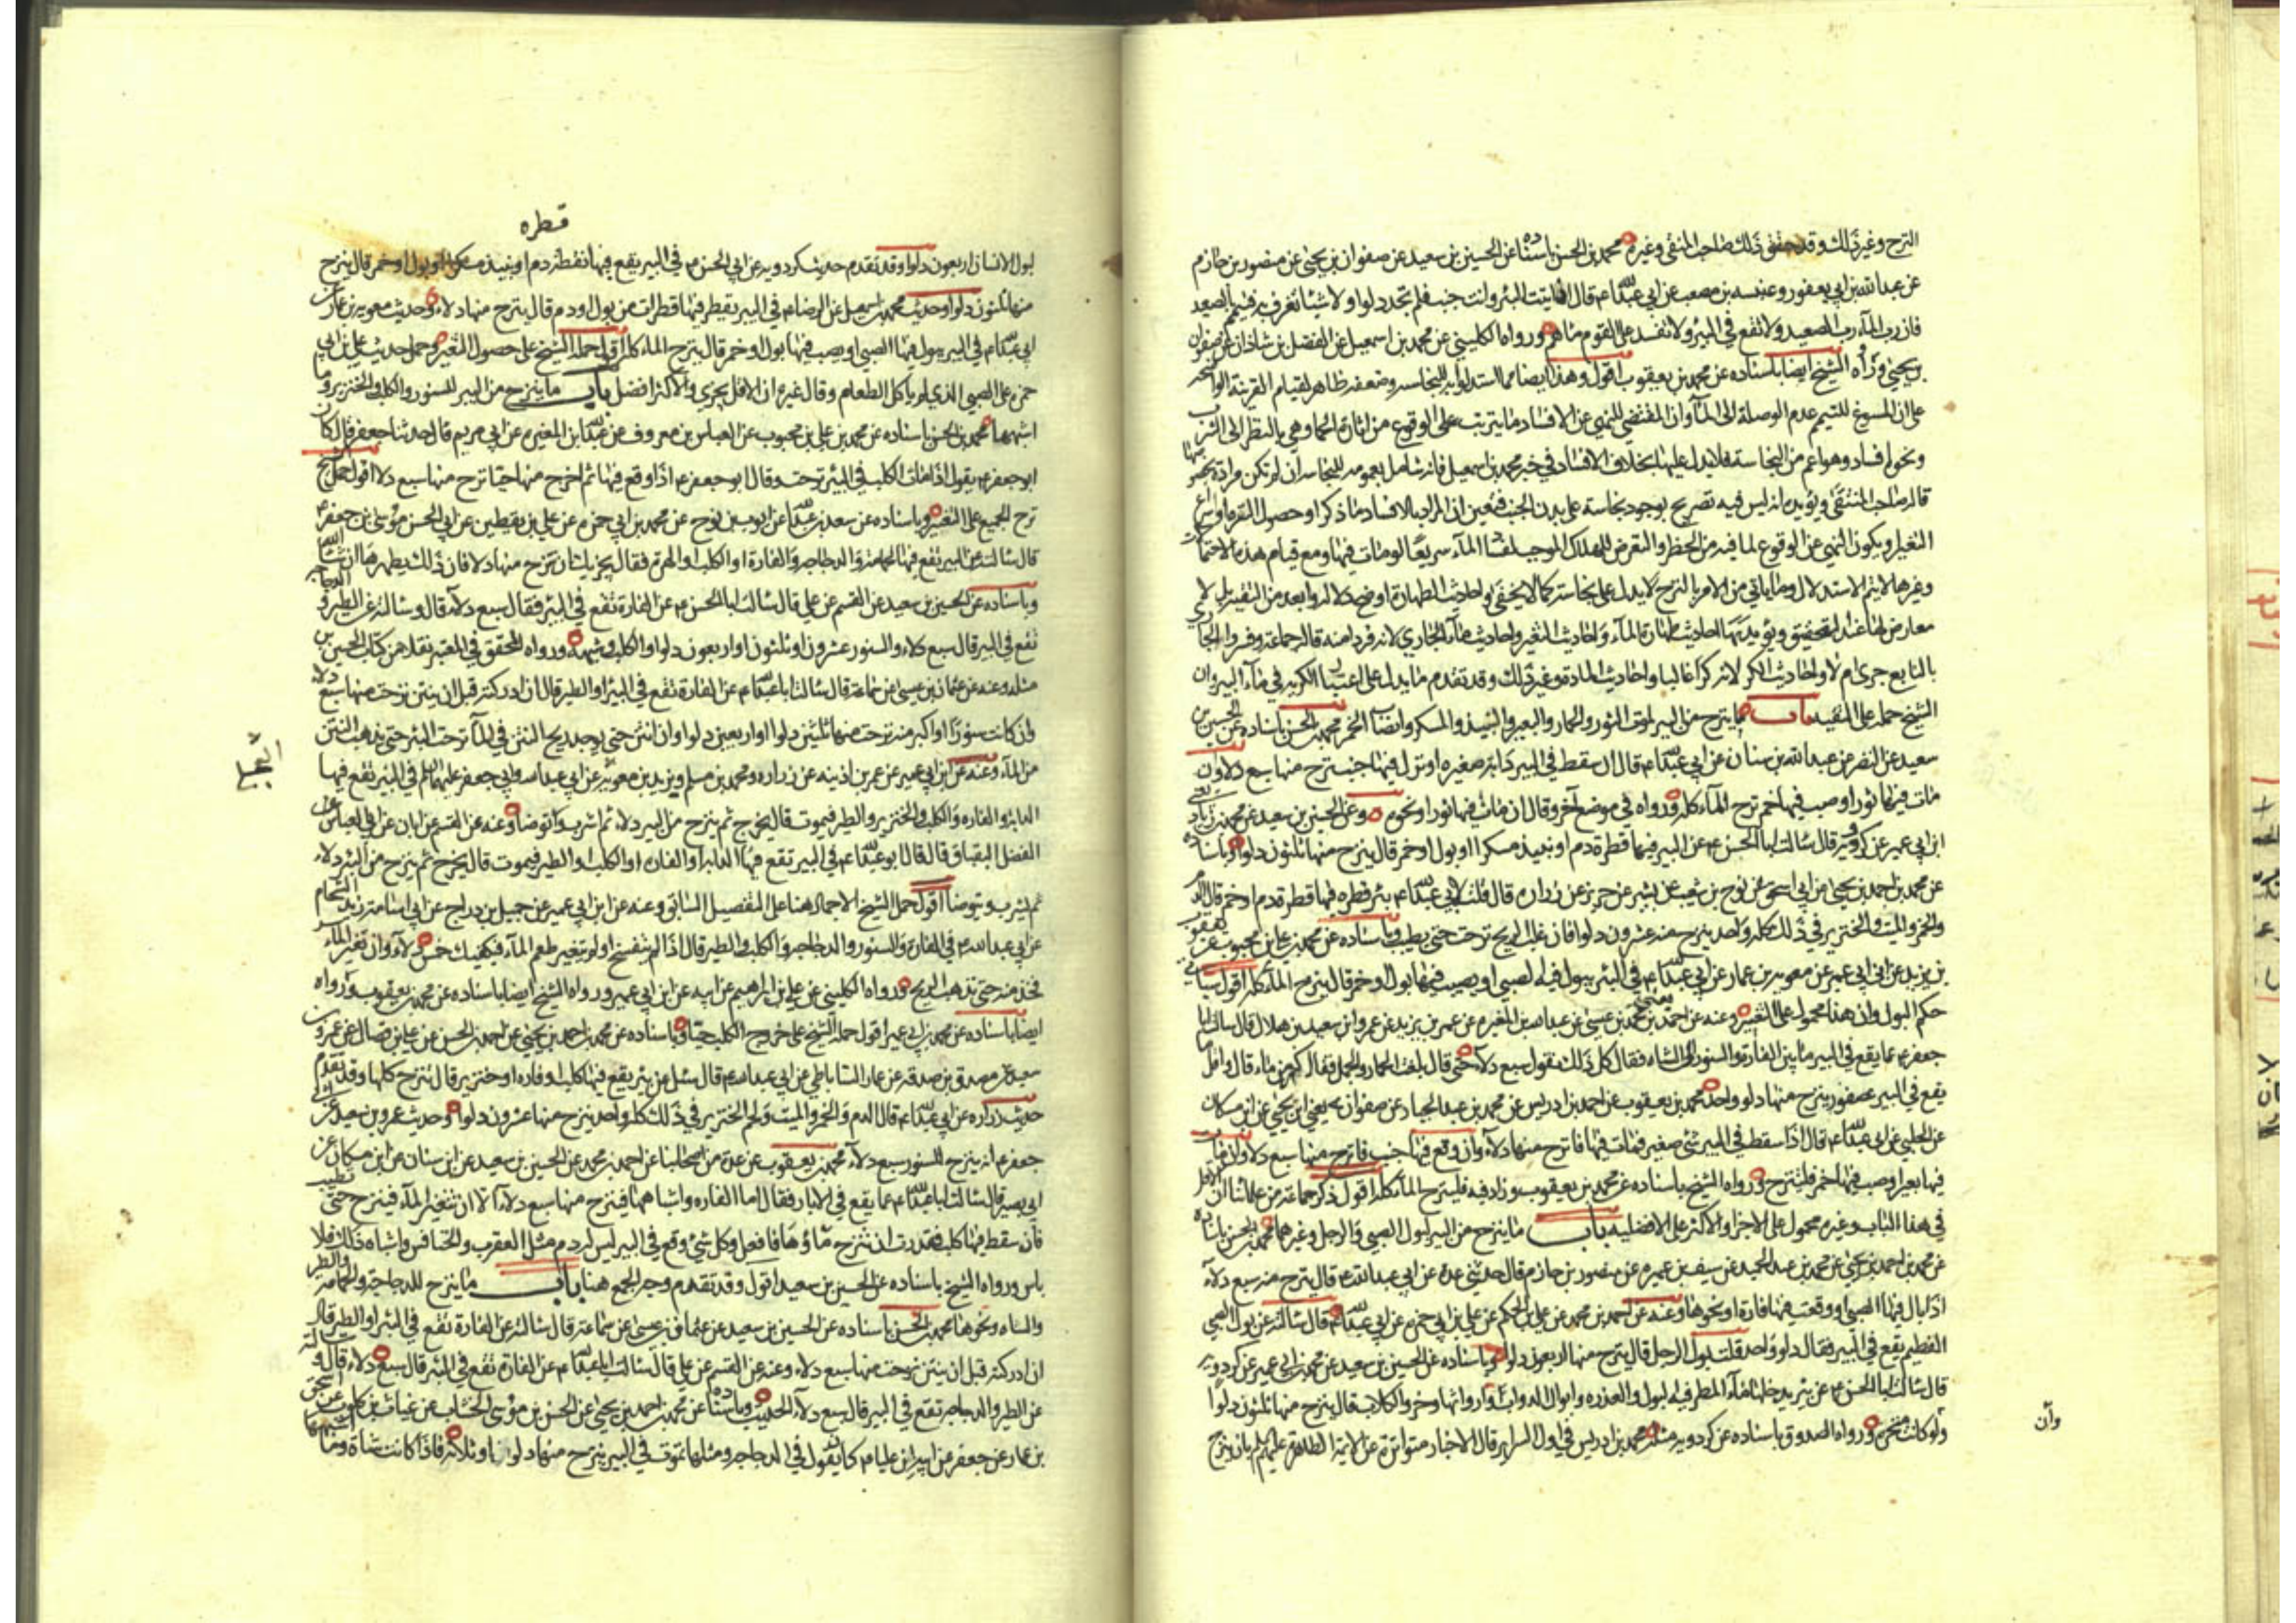 النزح وغير ذلك وقد حقق ذلك صاحب المنتقى وغيره محمد بن الحسن باسناده عن الحسين بن سعيد عن صفوان بن يحيى عن منصور بن حازم
عن عبد الله بن ابي يعفور وعنبسه بن مصعب عن ابي عبد الله ع قال اذا اتيت البئر وانت جنب فلم تجد دلوا ولا شيئا تغرف به فتيمم بالصعيد
فان رب الماء رب الصعيد ولا تقع في البئر ولا تفسد على القوم ماءهم ورواه الكليني عن محمد بن اسمعيل عن الفضل بن شاذان عن صفوان
بن يحيى ورواه الشيخ ايضا باسناده عن محمد بن يعقوب اقول وهذا ايضا مما استدلوا به للنجاسه وضعفه ظاهر لقيام القرينة الواضحه
على ان المسوغ للتيمم عدم الوصلة الى الماء وان المقتضي للنهي عن الافساد ما يترتب على الوقوع من اثارة الحماة وهي بالنظر الى الشرب
ونحوه افساد وهو اعم من النجاسة فلا يدل عليها بخلاف الافساد في خبر محمد بن اسمعيل فانه شامل بعمومه للنجاسه ان لم تكن مرادة بخصوصها
قاله صاحب المنتقى ويؤيده انه ليس فيه تصريح بوجود نجاسة على بدن الجنب فتعين ان المراد بالافساد ما ذكر او حصول النفرة او اسراع
التغير او يكون النهي عن الوقوع لما فيه من الخطر والتعرض للهلاك الموجب لفساد الماء سريعا لو مات فيها ومع قيام هذه الاحتمالات
وغيرها لا يتم الاستدلال وما ياتي من الامر بالنزح لا يدل على نجاسته كما لا يخفى واحاديث الطهارة اوضح دلالة وابعد من التقية بل لا
معارض لها عند التحقيق ويؤيدها احاديث طهارة الماء واحاديث التغير واحاديث ماء الجاري لانه فرد منه قاله جماعة وفسروا الجاري
بالنابع جرى ام لا واحاديث الكر لانه كر غالبا واحاديث المادة وغير ذلك وقد تقدم ما يدل على اعتبار الكرية في ماء البير وان
الشيخ حمله على التقيه باب ما ينزح من البير لموت الثور والحمار والبعير والنبيذ والمسكر وانصباب الخمر محمد بن الحسن باسناده عن الحسين بن
سعيد عن النضر عن عبد الله بن سنان عن ابي عبد الله ع قال ان سقط في البير دابة صغيره او نزل فيها جنب نزح منها سبع دلاء وان
مات فيها ثور او صب فيها خمر نزح الماء كله ورواه في موضع آخر وقال ان مات فيها ثور او نحوه وعن الحسين بن سعيد عن محمد بن زياد يعني
ابن ابي عمير عن كردويه قال سالت ابا الحسن ع عن البير يقع فيها قطرة دم او نبيذ مسكر او بول او خمر قال ينزح منها ثلثون دلوا وباسناده
عن محمد بن احمد بن يحيى عن ابي اسحق عن نوح بن شعيب عن بشير عن حريز عن زراره قال قلت لابي عبد الله ع بئر قطره فيها قطرة دم او خمر قال الدم
والخمر والميت ولحم الخنزير في ذلك كله واحد ينزح منه عشرون دلوا فان غلب الريح نزحت حتى يطيب وباسناده عن محمد بن علي بن محبوب عن يعقوب
بن يزيد عن ابن ابي عمير عن معويه بن عمار عن ابي عبد الله ع في البئر يبول فيها الصبي او يصب فيها بول او خمر قال ينزح الماء كله اقول سياتي
حكم البول وان هذا محمول على التغير وعنه عن احمد بن محمد بن عيسى عن عبد الله بن المغيره عن عمر بن يزيد عن عمرو بن سعيد بن هلال قال سالت ابا
جعفر ع عما يقع في البير ما بين الفارة والسنور الى الشاه فقال كل ذلك نقول سبع دلاء حتى قال بلغت الحمار والجمل فقال كر من ماء قال واقل ما
يقع في البير عصفور ينزح منها دلو واحد محمد بن يعقوب عن احمد بن ادريس عن محمد بن عبد الجبار عن صفوان يعني ابن يحيى عن ابن مسكان
عن الحلبي عن ابي عبد الله ع قال اذا سقط في البير شئ صغير فمات فيها فانزح منها دلاء وان وقع فيها جنب فانزح منها سبع دلاء وان مات
فيها بعير او صب فيها خمر فلتنزح ورواه الشيخ باسناده عن محمد بن يعقوب وزاد فيه فلينزح الماء كله اقول ذكر جماعة من علمائنا ان الاقل
في هذا الباب وغيره محمول على الاجزاء والاكثر على الافضليه باب ما ينزح من البير لبول الصبي والرجل وغيرهما محمد بن الحسن باسناده
عن محمد بن احمد بن يحيى عن محمد بن عبد الحميد عن سيف بن عميره عن منصور بن حازم قال حدثني عدة عن ابي عبد الله ع قال ينزح منه سبع دلاء
اذا بال فيها الصبي او وقعت فيها فارة او نحوها وعنه عن احمد بن محمد عن علي بن الحكم عن علي بن ابي حمزه عن ابي عبد الله ع قال سالته عن بول الصبي
الفطيم يقع في البير فقال دلو واحد قلت بول الرجل قال ينزح منها اربعون دلوا وباسناده عن الحسين بن سعيد عن محمد بن ابي عمير عن كردويه
قال سالت ابا الحسن ع عن بئر يدخلها ماء المطر فيه البول والعذره وابوال الدواب وارواثها وخرء الكلاب قال ينزح منها ثلثون دلوا
ولو كانت مبخرة ورواه الصدوق باسناده عن كردويه مثله محمد بن ادريس في اول السراير قال الاخبار متواترة عن الائمة الطاهرة عليهم السلم بان ينزح
وان
قطره
لبول الانسان اربعون دلوا وقد تقدم حديث كردويه عن ابي الحسن ع في البير يقع فيها قطرة دم او نبيذ مسكر او بول او خمر قال ينزح
منها ثلثون دلوا وحديث محمد بن اسمعيل عن الرضا ع في البير يقطر فيها قطرات من بول او دم قال ينزح منها دلاء وحديث معويه بن عمار عن
ابي عبد الله ع في البير يبول فيها الصبي او يصب فيها بول او خمر قال ينزح الماء كله اقول حمله الشيخ على حصول التغير وحمل حديث علي بن ابي
حمزه على الصبي الذي لم ياكل الطعام وقال غيره ان الاقل يجزي والاكثر افضل باب ما ينزح من البير للسنور والكلب والخنزير وما
اشبهها محمد بن الحسن باسناده عن محمد بن علي بن محبوب عن العباس بن معروف عن عبد الله بن المغيره عن ابي مريم قال حدثنا جعفر قال كان
ابو جعفر ع يقول اذا مات الكلب في البئر نزحت وقال ابو جعفر ع اذا وقع فيها ثم اخرج منها حيا نزح منها سبع دلاء اقول حمل الشيخ
نزح الجميع على التغير وباسناده عن سعد بن عبد الله عن ايوب بن نوح عن محمد بن ابي حمزه عن علي بن يقطين عن ابي الحسن موسى بن جعفر ع
قال سالته عن البير تقع فيها الحمامة والدجاجه والفارة او الكلب او الهرة فقال يجزيك ان تنزح منها دلاء فان ذلك يطهرها ان شاء الله
وباسناده عن الحسين بن سعيد عن القسم عن علي قال سالت ابا عبد الله ع عن الفارة تقع في البئر فقال سبع دلاء قال وسالته عن الطير والدجاجه
تقع في البير قال سبع دلاء والسنور عشرون او ثلثون او اربعون دلوا والكلب وشبهه ورواه المحقق في المعتبر نقلا من كتاب الحسين بن
مثله وعنه عن عثمان بن عيسى عن سماعة قال سالت ابا عبد الله ع عن الفارة تقع في البئر او الطير قال ان ادركته قبل ان ينتن نزحت منها سبع دلاء
وان كانت سنورا او اكبر منه نزحت منها ثلثين دلوا او اربعين دلوا وان انتن حتى يوجد ريح النتن في الماء نزحت البئر حتى يذهب النتن
من الماء وعنه عن ابن ابي عمير عن عمر بن اذينه عن زراره ومحمد بن مسلم ويزيد بن معويه عن ابي عبد الله وابي جعفر عليهما السلم في البئر تقع فيها
الدابة والفاره والكلب والخنزير والطير فيموت قال يخرج ثم ينزح من البير دلاء ثم اشرب وتوضا وعنه عن القسم عن ابان عن ابي العباس
الفضل البقباق قال قال ابو عبد الله ع في البير تقع فيها الدابه او الفاره او الكلب او الطير فيموت قال يخرج ثم ينزح من البئر دلاء
ثم يشرب ويتوضا اقول حمل الشيخ الاجمال هنا على التفصيل السابق وعنه عن ابن ابي عمير عن جميل بن دراج عن ابي اسامة زيد الشحام
عن ابي عبد الله ع في الفارة والسنور والدجاجه والكلب والطير قال اذا لم يتفسخ او لم يتغير طعم الماء فيكفيك خمس دلاء وان تغير الماء
فخذ منه حتى تذهب الريح ورواه الكليني عن علي بن ابراهيم عن ابيه عن ابن ابي عمير ورواه الشيخ ايضا باسناده عن محمد بن يعقوب ورواه
ايضا باسناده عن محمد بن ابي عمير اقول حمله الشيخ على خروج الكلب حيا وباسناده عن محمد بن احمد بن يحيى عن احمد بن الحسن عن علي بن فضال عن عمرو بن
سعيد عن مصدق بن صدقه عن عمار الساباطي عن ابي عبد الله ع قال سئل عن بئر يقع فيها كلب او فاره او خنزير قال تنزح كلها وقد تقدم
حديث زراره عن ابي عبد الله ع قال الدم والخمر والميت ولحم الخنزير في ذلك كله واحد ينزح منها عشرون دلوا وحديث عمرو بن سعيد عن ابي
جعفر ع انه ينزح للسنور سبع دلاء محمد بن يعقوب عن عدة من اصحابنا عن احمد بن محمد عن الحسين بن سعيد عن ابن سنان عن ابن مسكان عن
ابي بصير قال سالت ابا عبد الله ع عما يقع في الابار فقال اما الفاره واشباهها فينزح منها سبع دلاء الا ان يتغير الماء فينزح حتى تطيب
فان سقط فيها كلب فقدرت ان تنزح ماؤها فافعل وكل شئ وقع في البير ليس له دم مثل العقرب والخنافس واشباه ذلك فلا
باس ورواه الشيخ باسناده عن الحسين بن سعيد اقول وقد تقدم وجه الجمع هنا باب ما ينزح للدجاجة والحمامه والطير
والشاه ونحوها محمد بن الحسن باسناده عن الحسين بن سعيد عن عثمان بن عيسى عن سماعة قال سالته عن الفارة تقع في البئر او الطير قال
ان ادركته قبل ان ينتن نزحت منها سبع دلاء وعنه عن القسم عن علي قال سالت ابا عبد الله ع عن الفارة تقع في البئر قال سبع دلاء قال وسالته
عن الطير والدجاجه تقع في البير قال سبع دلاء الحديث وباسناده عن محمد بن احمد بن يحيى عن الحسن بن موسى الخشاب عن غياث بن كلوب عن اسحق
بن عمار عن جعفر عن ابيه ان عليا ع كان يقول في الدجاجه ومثلها تموت في البير ينزح منها دلوان وثلاثه فاذا كانت شاة وما اشبهها